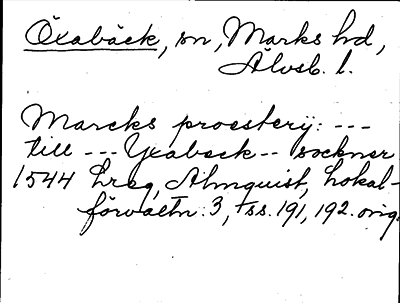 Öxabäck, sn, Marks hd,
Älvsb. l.
Marcks proesterij: ---
till --- Yxabeck -- sockner
1544 Lreg, Almquist, Lokal-
förvaltn. 3, ss. 191, 192. orig.